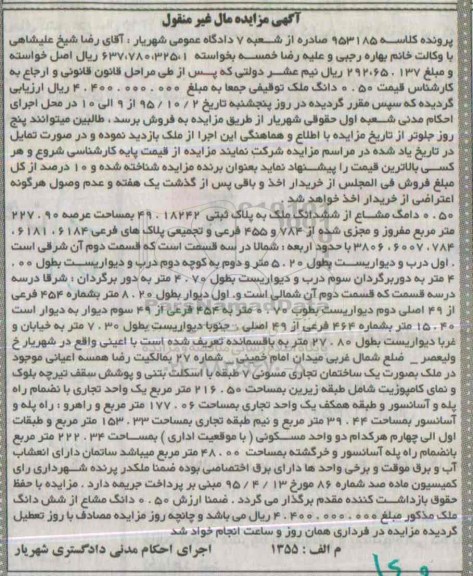 آگهی مزایده مال غیر منقول
پرونده کلاسه ۹۵۳۱۸۵ صادره از شعبه ۷ دادگاه عمومی شهریار : آقای رضا شیخ علیشاهی
با وکالت خانم بهاره رجبی و علیه رضا خمسه بخواسته ۶۳۷.۷۸۰.۳۲۵.۱ ریال اصل خواسته
و مبلغ ۲۹۲.۶۵.۱۳۷ ریال نیم عشر دولتی که پس از طی مراحل قانون قانونی و ارجاع به
کارشناس قیمت ۰.۵۰ دانگ ملک توقیفی جمعا به مبلغ ۴.۴۰۰.۰۰۰.۰۰۰ ریال ارزیابی
گردیده که سپس مقرر گردیده در روز پنجشنبه تاریخ ۹۵/۱۰/۲ از ۹ الی ۱۰ در محل اجرای
احکام مدنی شعبه اول حقوقی شهریار از طریق مزایده به فروش برسد . طالبین میتوانند پنج
روز جلوتر از تاریخ مزایده با اطلاع و هماهنگی این اجرا از ملک بازدید نموده و در صورت تمایل
در تاریخ یاد شده در مراسم مزایده شرکت نمایند مزایده از قیمت پایه کارشناسی شروع و هر
کسی بالاترین قیمت را پیشنهاد نماید بعنوان برنده مزایده شناخته شده و ۱۰ درصد از کل
مبلغ فروش فی المجلس از خریدار اخذ و باقی پس از گذشت یک هفته و عدم وصول هرگونه
اعتراضی از خریدار اخذ خواهد شد .
۰.۵۰ دامگ مشاع از ششدانگ ملک به پلاک ثبتی ۴۹.۱۸۲۴۲ بمساحت عرصه ۲۲۷.۹۰
متر مربع مفروز و مجزی شده از ۷۸۴ و ۴۵۵ فرعی و تجمیعی پلاک های فرعی ۶۱۸۱.۶۱۸۴.
۳۸۰۶.۶۰۰۷.۷۸۴ با حدود اربعه : شمالا در سه قسمت است که قسمت دوم آن شرقی است
. اول درب و دیواریست بطول ۵.۲۰ متر و دوم به کوچه دوم درب و دیواریست بطول ۰۰.
۴ متر به دوربرگردان سوم درب و دیواریست بطول ۴.۷۰ متر به دور برگردان : شرقا درسه
درسه قسمت که قسمت دوم آن شمالی است و. اول دیوار بطول ۸.۲۰ متر بشماره ۴۵۴ فرعی
از ۴۹ اصلی دوم دیواریست بطوب ۰.۹۰ متر به ۴۵۴ فرعی از ۴۹ سوم دیوار به دیوار است
۱۵.۴۰ متر بشماره ۴۶۴ فرعی از ۴۹ اصلی . جنوبا دیواریست بطول ۷.۳۰ متر به خیابان و
غربا دیواریست بطول ۲۷.۸۰ متر به باقسمانده تعریف شده است با اعینی واقع در شهریار خ
ولیعصر _ ضلع شمال غربی میدان امام خمینی _ شماره ۲۷ بمالکیت رضا همسه اعیانی موجود
در ملک بصورت یک ساختمان تجاری مسونی ۷ طبقه با اسکلت بتنی و پوشش سقف تیرچه بلوک
و نمای کامپوزیت شامل طبقه زیرین بمساحت ۲۱۶.۵۰ متر مربع یک واحد تجاری با نضمام راه
پله و آسانسور و طبقه همکف یک واحد تجاری بمساحت ۱۷۷.۰۶ متر مربع و راهرو : راه پله و
آسانسور بمساحت ۳۹.۴۴ متر مربع و نیم طبقه تجاری بمساحت ۱۵۳.۳۳ متر مربع و طبقات
اول الی چهارم هرکدام دو واحد مسکونی ( با موقعیت اداری ) بمساحت ۲۲۲.۳۴ متر مربع
بانضمام راه پله آسانسور و خرگشته بمساحت ۴۸.۰۰ متر مربع میباشد ساتمان دارای انعشاب
آب و برق موقت و برخی واحد ها دارای برق اختصاصی بوده ضمنا ملکدر پرنده شهرداری رای
کمیسیون ماده صد شماره ۸۶ مورخ ۹۵/۴/۱۳ مبنی بر پرداخت جریمه دارد . مزایده با حفظ
حقوق بازداشت کننده مقدم برگذار می گردد . ضمنا ارزش ۰.۵۰ دانگ مشاع از شش دانگ
ملک مذکور مبلغ ۴.۴۰۰.۰۰۰.۰۰۰ ریال می باشد و چانچه روز مزایده مصادف با روز تعطیل
گردیده مزایده در فرداری همان روز و ساعت انجام خواد شد
م الف : ۱۳۵۵ اجرای احکام مدنی دادگستری شهریار